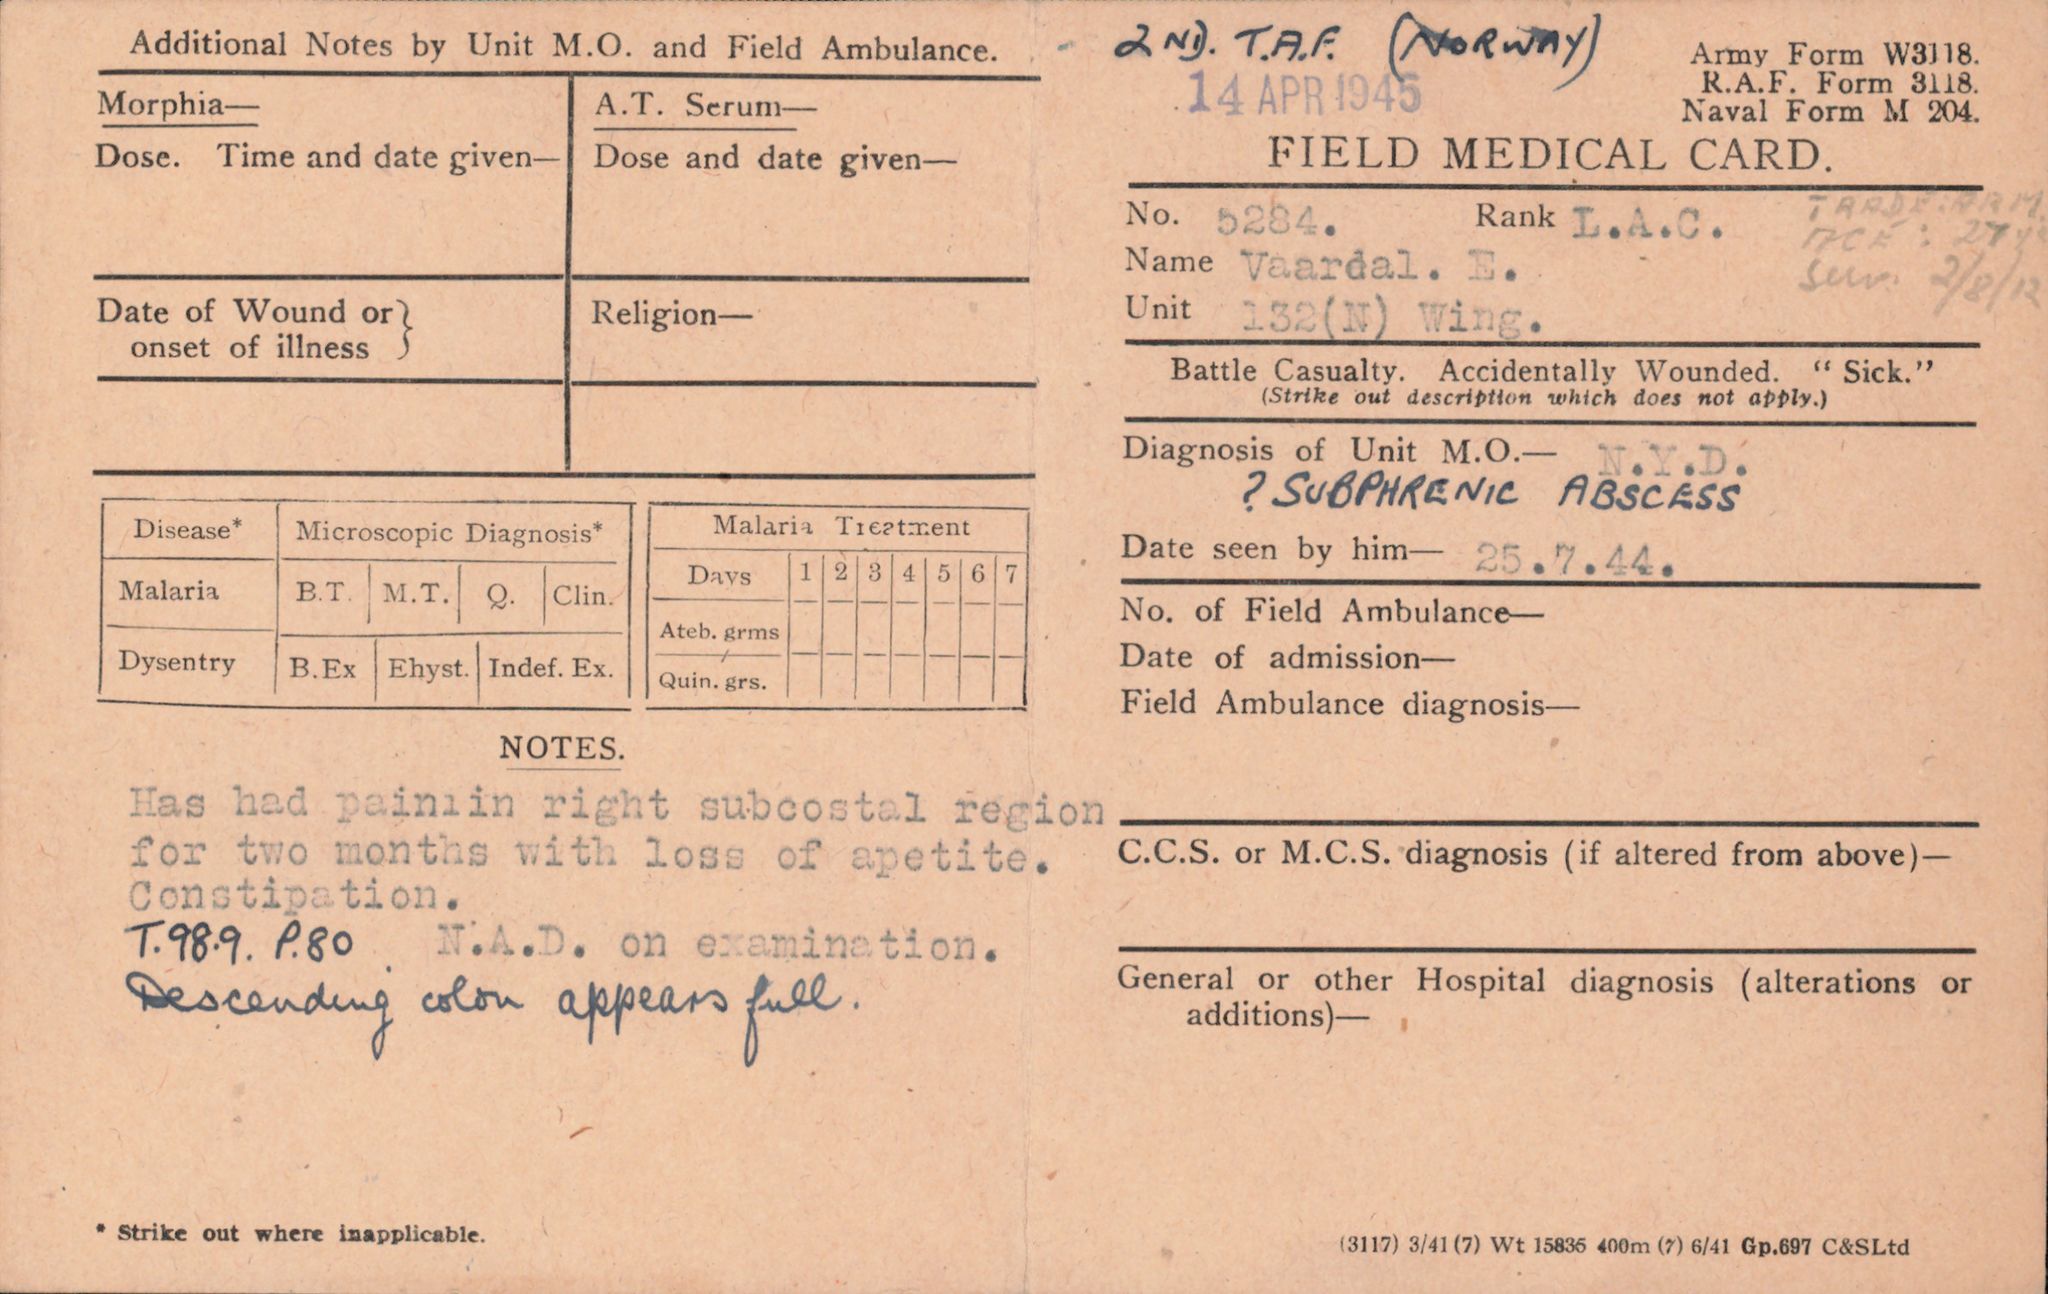 Additional Notes by Unit M.O. and Field Ambulance.
Morphia—
Dose. Time and date given—
A.T. Serum—
Dose and date given—
Date of Wound or
onset of illness
Religion—
Disease* Microscopic Diagnosis*
Malaria B.T. M.T. Q. Clin.
Dysentry B.Ex Ehyst. Indef. Ex.
Malaria Treatment
Days 1 2 3 4 5 6 7
Ateb. grms
Quin. grs.
NOTES.
Has had pain in right subcostal region
for two months with loss of apetite.
Constipation.
T.98.9. P.80 N.A.D. on examination.
Descending colon appears full.
* Strike out where inapplicable.
2ND. T.A.F. (NORWAY)
14 APR 1945
Army Form W3118.
R.A.F. Form 3118.
Naval Form M 204.
FIELD MEDICAL CARD.
No. 5284. Rank L.A.C.
Name Vaardal. E.
Unit 132(N) Wing.
TRADE: ARM.
AGE: 27
Serv. 2/8/12
Battle Casualty. Accidentally Wounded. "Sick."
(Strike out description which does not apply.)
Diagnosis of Unit M.O.— N.Y.D.
? SUBPHRENIC ABSCESS
Date seen by him— 25.7.44.
No. of Field Ambulance—
Date of admission—
Field Ambulance diagnosis—
C.C.S. or M.C.S. diagnosis (if altered from above)—
General or other Hospital diagnosis (alterations or
additions)—
(3117) 3/41 (7) Wt 15835 400m (7) 6/41 Gp.697 C&SLtd